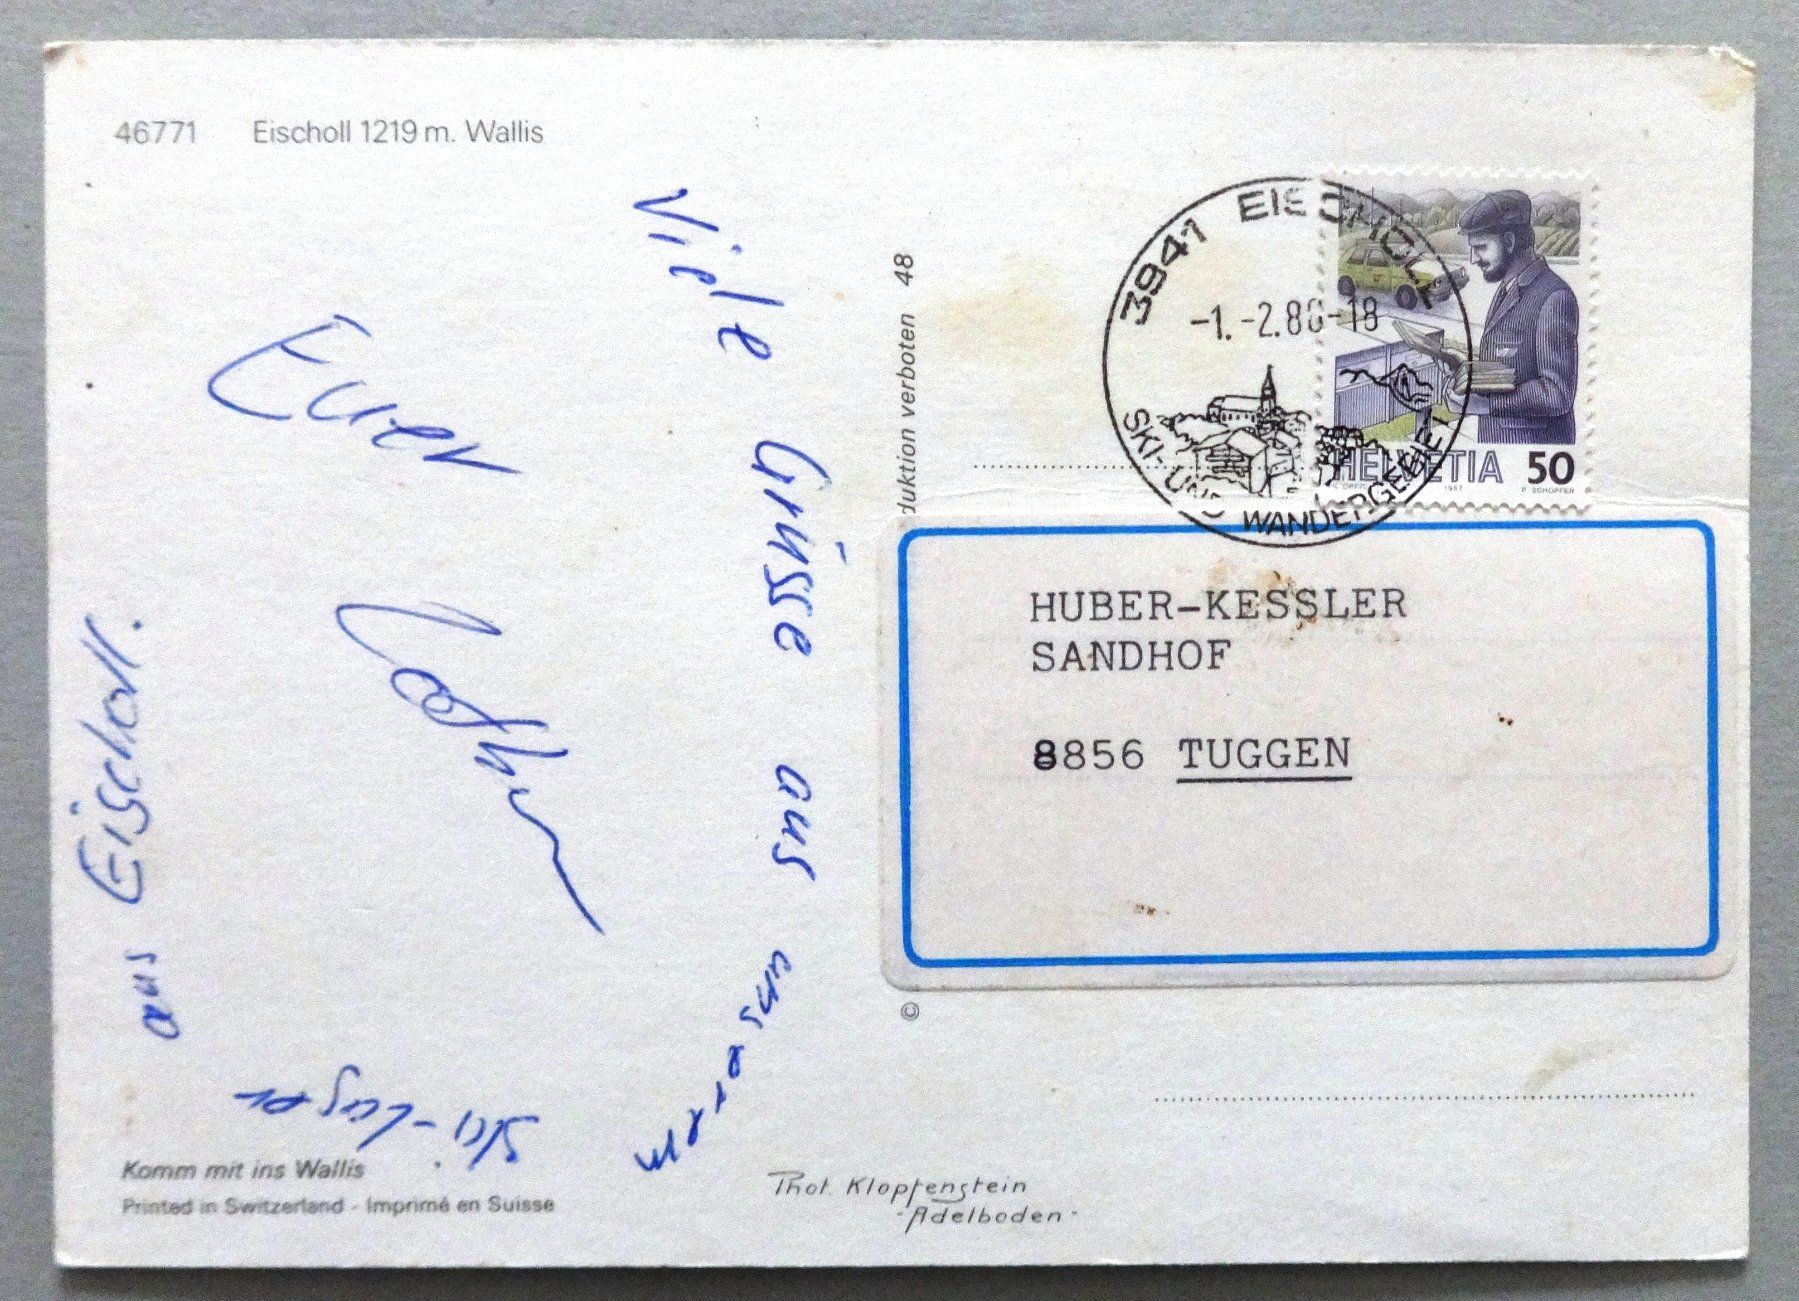 46771 Eischoll 1219 m. Wallis
Viele Grüsse aus unserem
Ski-Lager
aus Eischoll.
Euer
duktion verboten 48
©
3941 EISCHOLL
-1.-2.88-18
SKI- UND WANDERGEBIET
HELVETIA 50
1987
HUBER-KESSLER
SANDHOF
8856 TUGGEN
Komm mit ins Wallis
Printed in Switzerland - Imprimé en Suisse
Phot. Klopfenstein
-Adelboden-